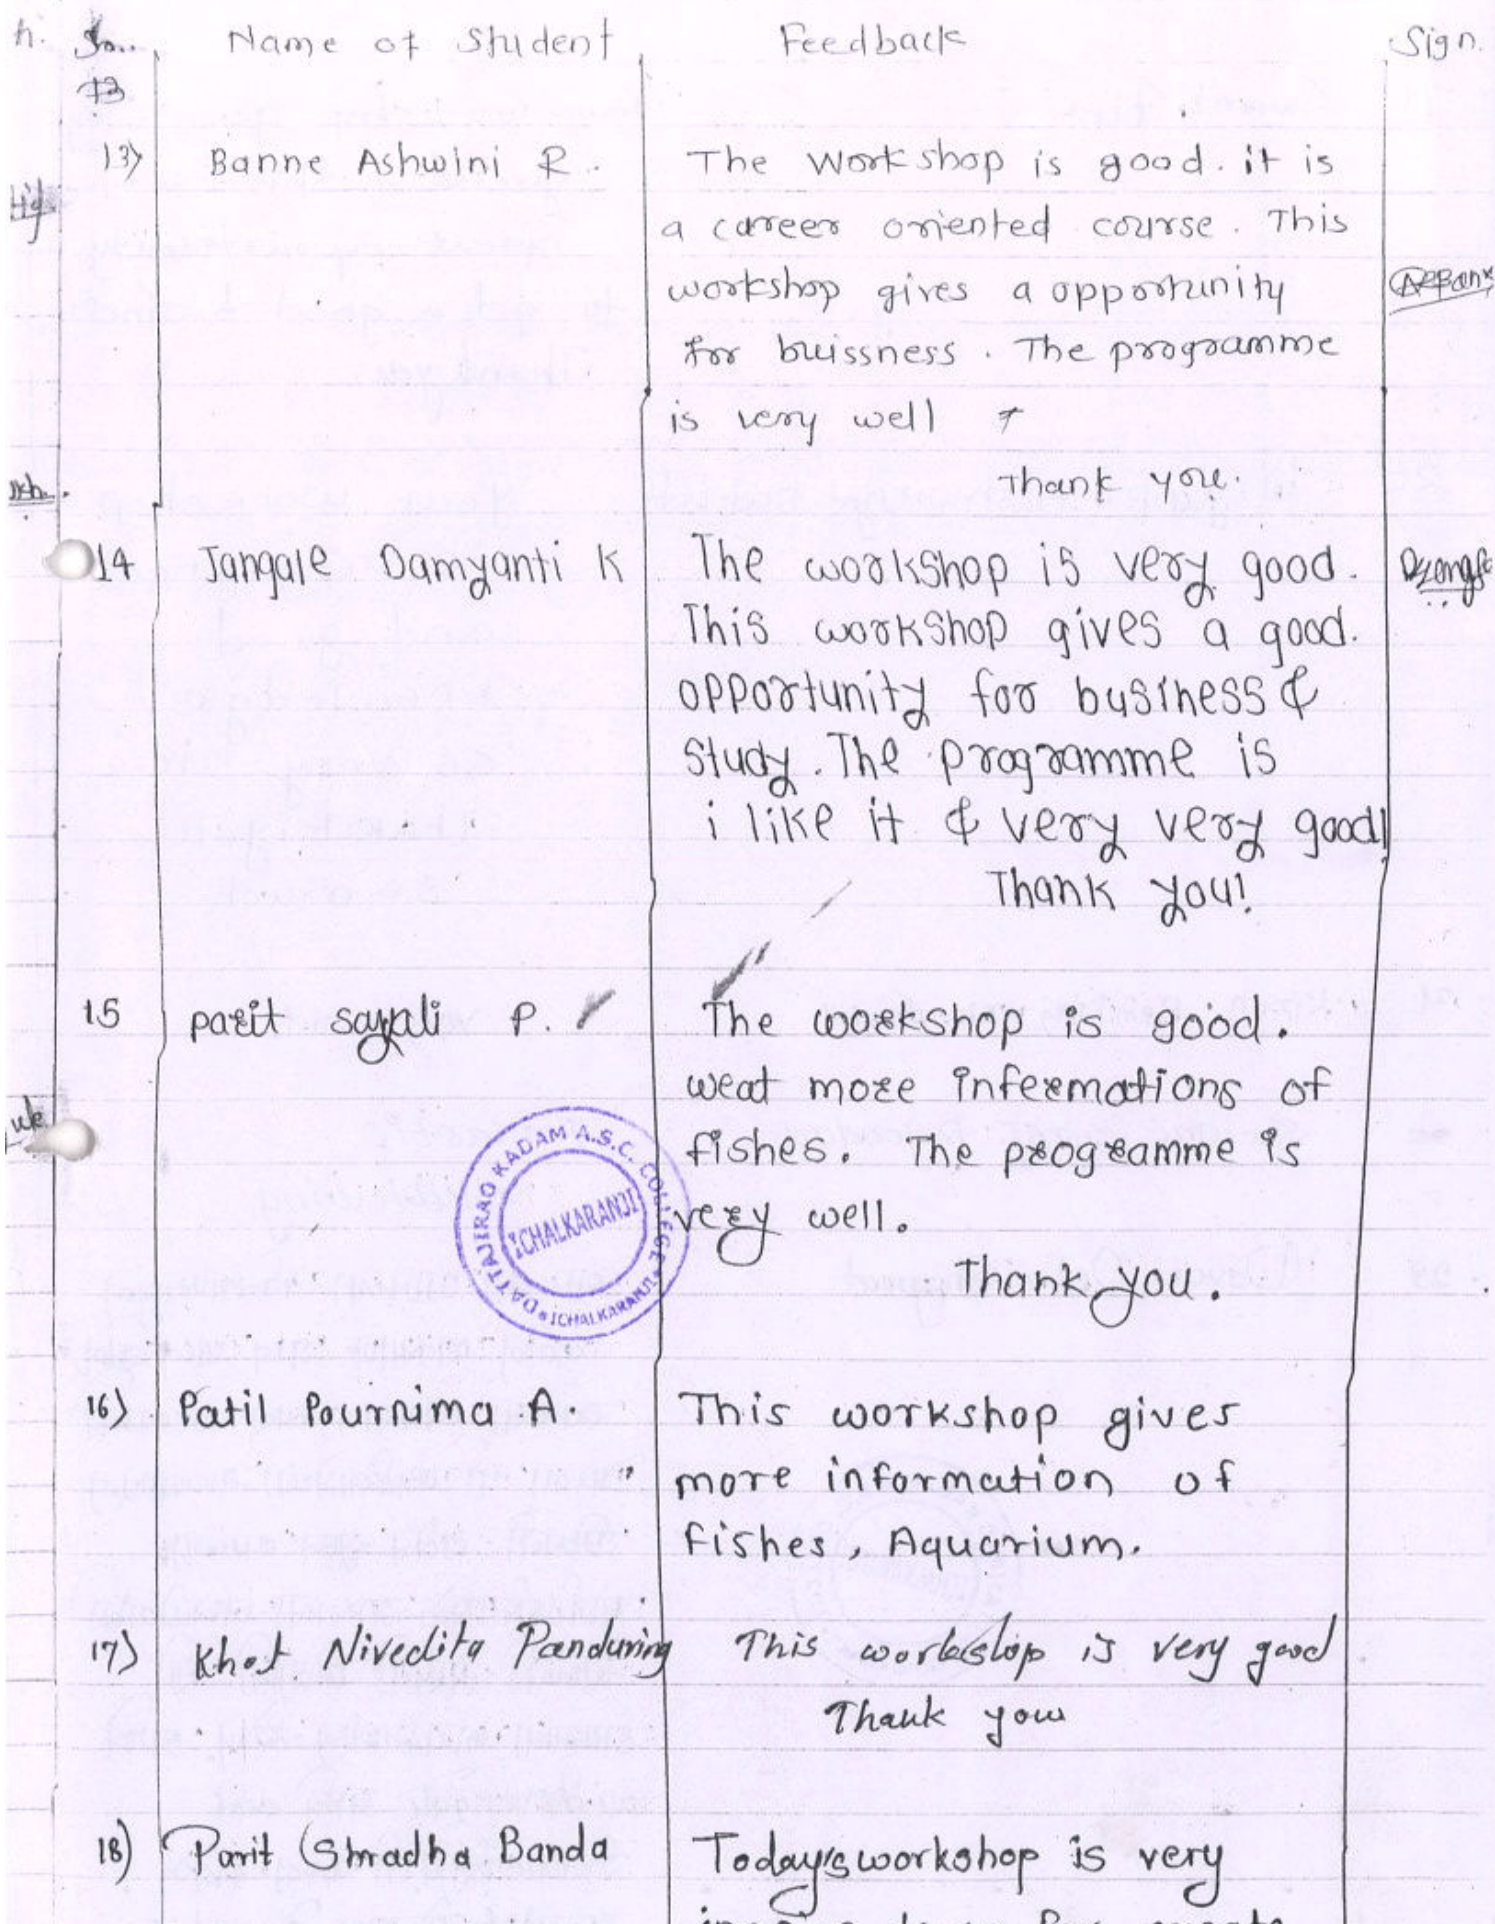 Name of Student Feedback Sign.
13
13) Banne Ashwini R. The Workshop is good. it is
a career oriented course. This
workshop gives a opportunity
for buissness. The programme
is very well
Thank you.
14 Jangale Damyanti K The workshop is very good.
This workshop gives a good.
opportunity for business &
study. The programme is
i like it & very very good!
Thank you!
15 parit sayali P. The workshop is good.
weat more infermations of
fishes. The programme is
very well.
Thank you.
DATTAJIRAO KADAM A.S.C. COLLEGE
ICHALKARANJI
ICHALKARANJI
16) Patil Pournima A. This workshop gives
more information of
fishes, Aquarium.
17) Khot Nivedita Panduring This workslop is very good
Thank you
18) Parit Shradha Banda Today's workshop is very